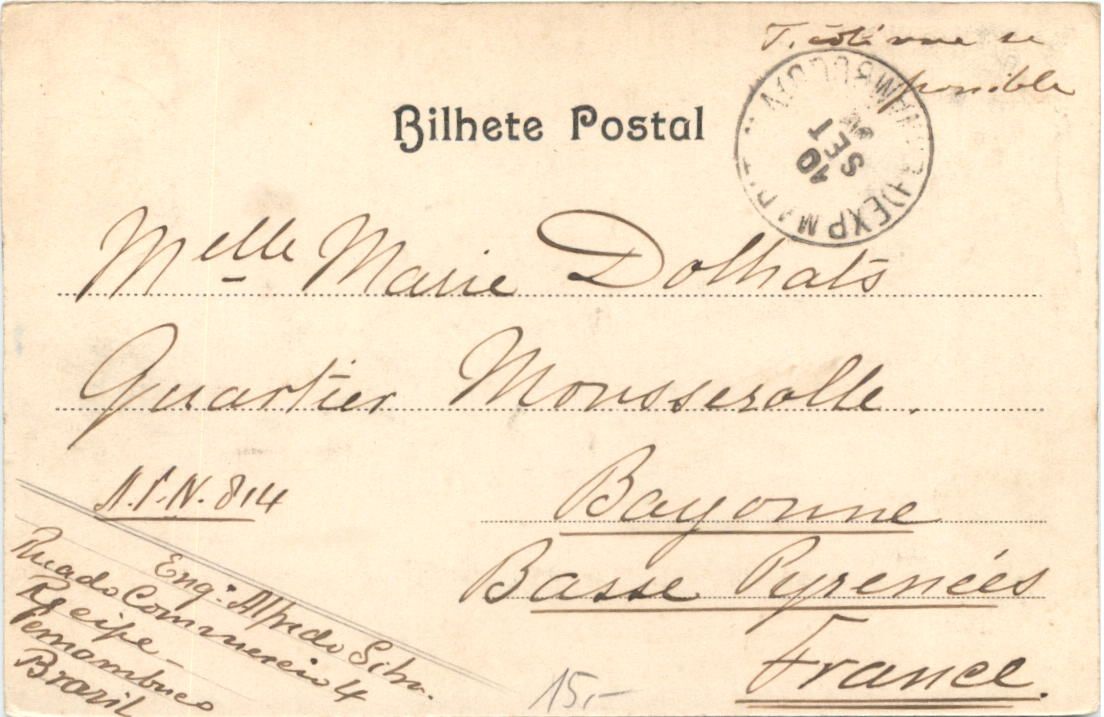 T. côté vue se
possible
Bilhete Postal
10
SET
EXP
Melle Marie Dolhats
Quartier Mousserolle.
Bayonne
Basse Pyrenées
France.
814
Engo. Alfredo Silva.
Rua do Commercio 4
Recife
Pernambuco
Brazil
15,-